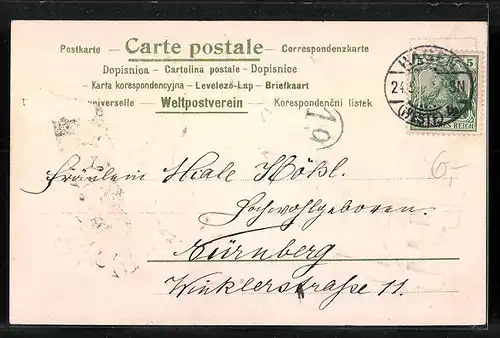 Postkarte – Carte postale – Correspondenzkarte
Dopisnica – Cartolina postale – Dopisnice
Karta korespondencyjna – Levelező-Lap – Briefkaart
universelle – Weltpostverein – Korespondenční listek
HAGEN
5
24
(WESTF.)
REICH
Fräulein
Hochwohlgeboren.
Nürnberg
Winklerstraße 11.
6,-